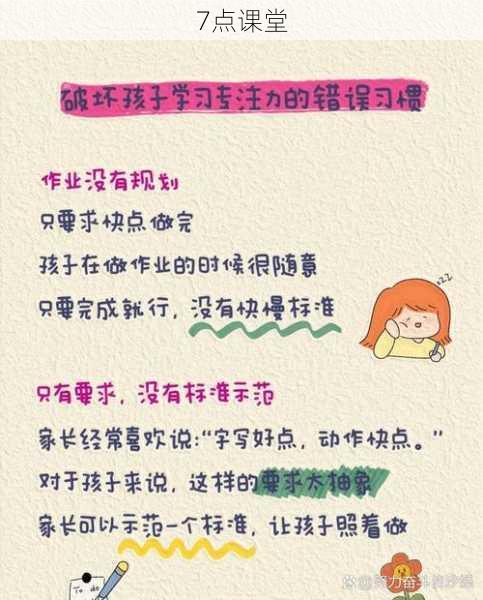 7点课堂
破坏孩子学习专注力的错误习惯
作业没有规划
只要求快点做完
孩子在做作业的时候很随意
只要完成就行，没有快慢标准
zZZ
只有要求，没有标准示范
家长经常喜欢说:“字写好点，动作快点。”
对于孩子来说，这样的要求太抽象
家长可以示范一个标准，让孩子照着做
To do
力奋斗